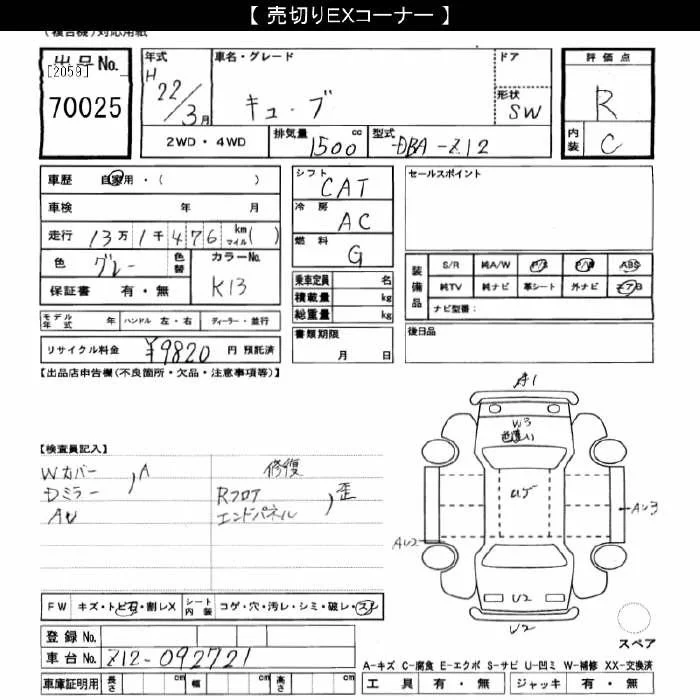 【 売切りEXコーナー 】
(複合機)対応用紙
出品No.
[2059]
70025
年式
H
22/3月
車名・グレード
キューブ
ドア
形状
SW
評価点
R
内装
C
2WD・4WD
排気量
1500cc
型式
DBA-Z12
車歴 自家用・( )
車検 年 月
走行 13万1千476 km マイル( )
色 グレー
色替
カラーNo.
K13
保証書 有・無
シフト
CAT
冷房
AC
燃料
G
乗車定員 名
積載量 kg
総重量 kg
セールスポイント
装備品
S/R 純A/W P/S P/W ABS
純TV 純ナビ 革シート 外ナビ エアB
ナビ型番：
モデル年式 年
ハンドル 左・右
ディーラー・並行
書類期限
月 日
後日品
リサイクル料金 ¥9820 円 預託済
【出品店申告欄(不良箇所・欠品・注意事項等)】
A1
W3
色違い
【検査員記入】
Wカバー
Dミラー
, A
AU
修復
Rフロア
エンドパネル
, 歪
AU2
AU3
U2
U2
FW キズ・トビ石・割レX
シート内装 コゲ・穴・汚レ・シミ・破レ・スレ
登録No.
車台No. Z12-092721
車庫証明用 長さ cm 幅 cm 高さ cm
スペア
A-キズ C-腐食 E-エクボ S-サビ U-凹ミ W-補修 XX-交換済
工具 有・無 ジャッキ 有・無